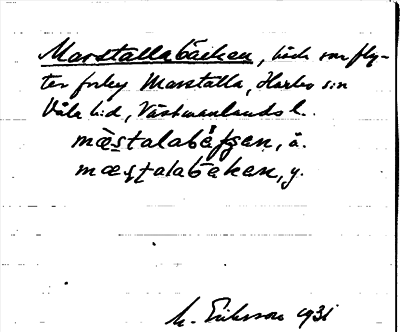 Marstallabäcken, bäck som fly-
ter förbi Marstalla, Harbo sn
Våla hd, Västmanlands l.
mæstalabäҫҫen, ä.
mæstalabäken, y.
M. Eriksson 1931